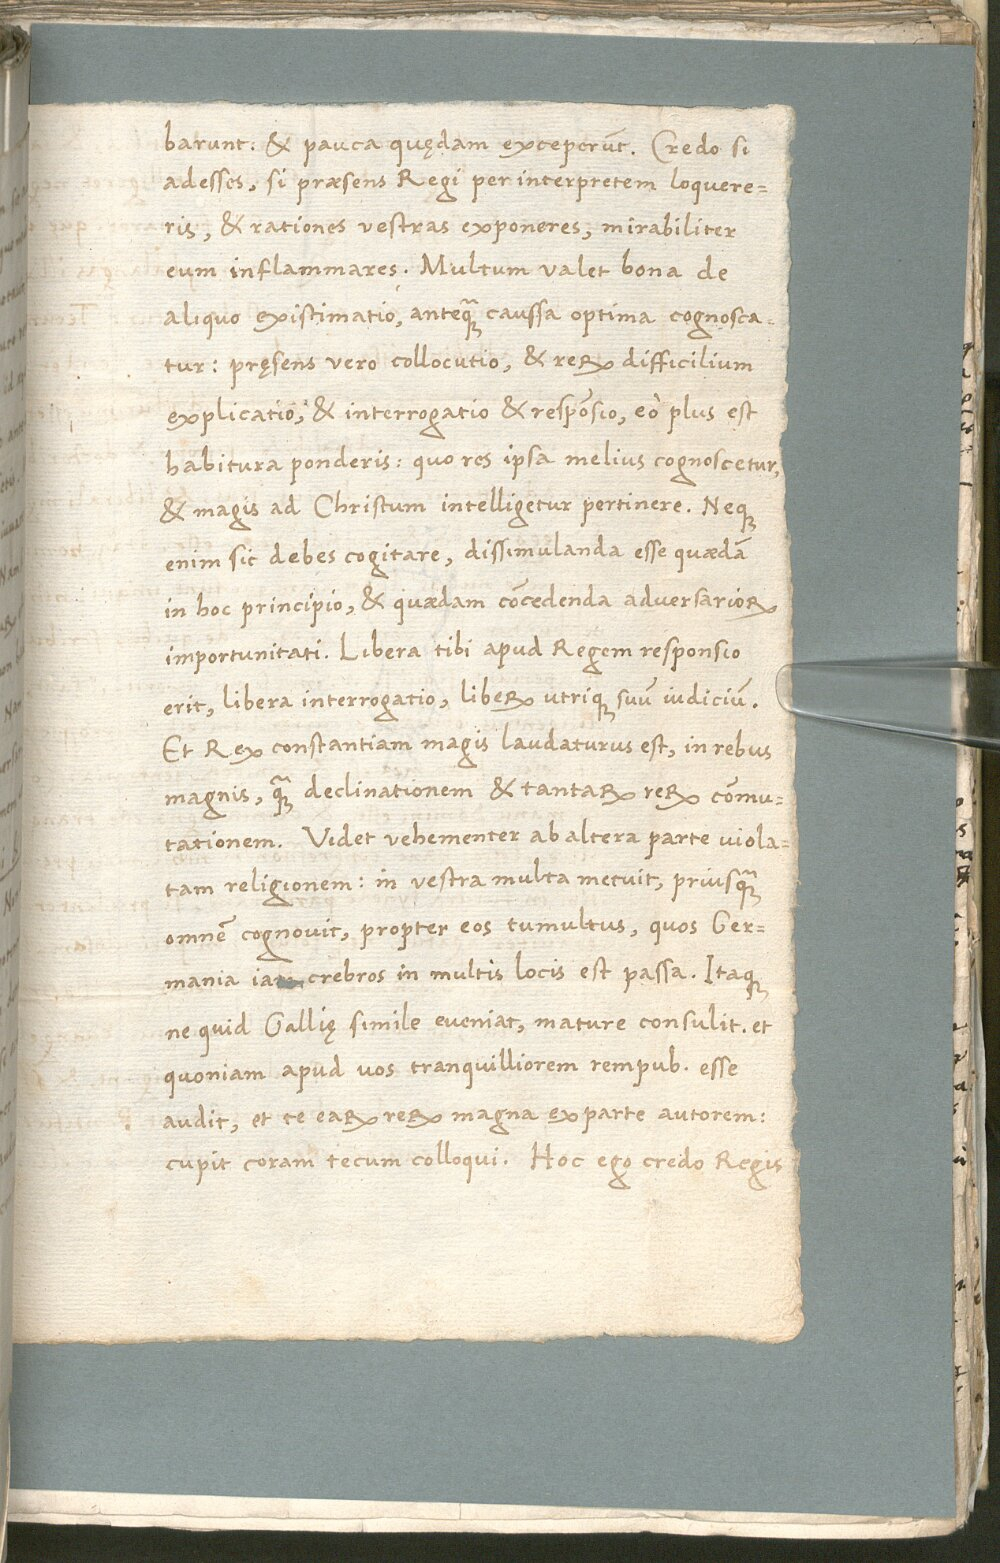 barunt: & pauca quędam exceperūt. Credo si
adesses, si præsens Regi per interpretem loquere=
ris, & rationes vestras exponeres, mirabiliter
eum inflammares. Multum valet bona de
aliquo existimatio, anteqꝫ caussa optima cognosca-
tur: pręsens vero collocutio, & reꝝ difficilium
explicatio, & interrogatio & respōsio, eò plus est
habitura ponderis: quo res ipsa melius cognoscetur,
& magis ad Christum intelligetur pertinere. Neqꝫ
enim sic debes cogitare, dissimulanda esse quædā
in hoc principio, & quædam cōcedenda adversarioꝝ
importunitati. Libera tibi apud Regem responsio
erit, libera interrogatio, libeꝝ utriqꝫ suū iudiciū.
Et Rex constantiam magis laudaturus est, in rebus
magnis, q̃ꝫ declinationem & tantaꝝ reꝝ cōmu=
tationem. Videt vehementer ab altera parte viola=
tam religionem: in vestra multa metuit, priusq̃ꝫ
omnē cognovit, propter eos tumultus, quos Ger=
mania iam crebros in multis locis est passa. Itaqꝫ
ne quid Gallię simile eveniat, mature consulit. et
quoniam apud vos tranquilliorem rempub. esse
audit, et te eaꝝ reꝝ magna ex parte autorem:
cupit coram tecum colloqui. Hoc ego credo Regis